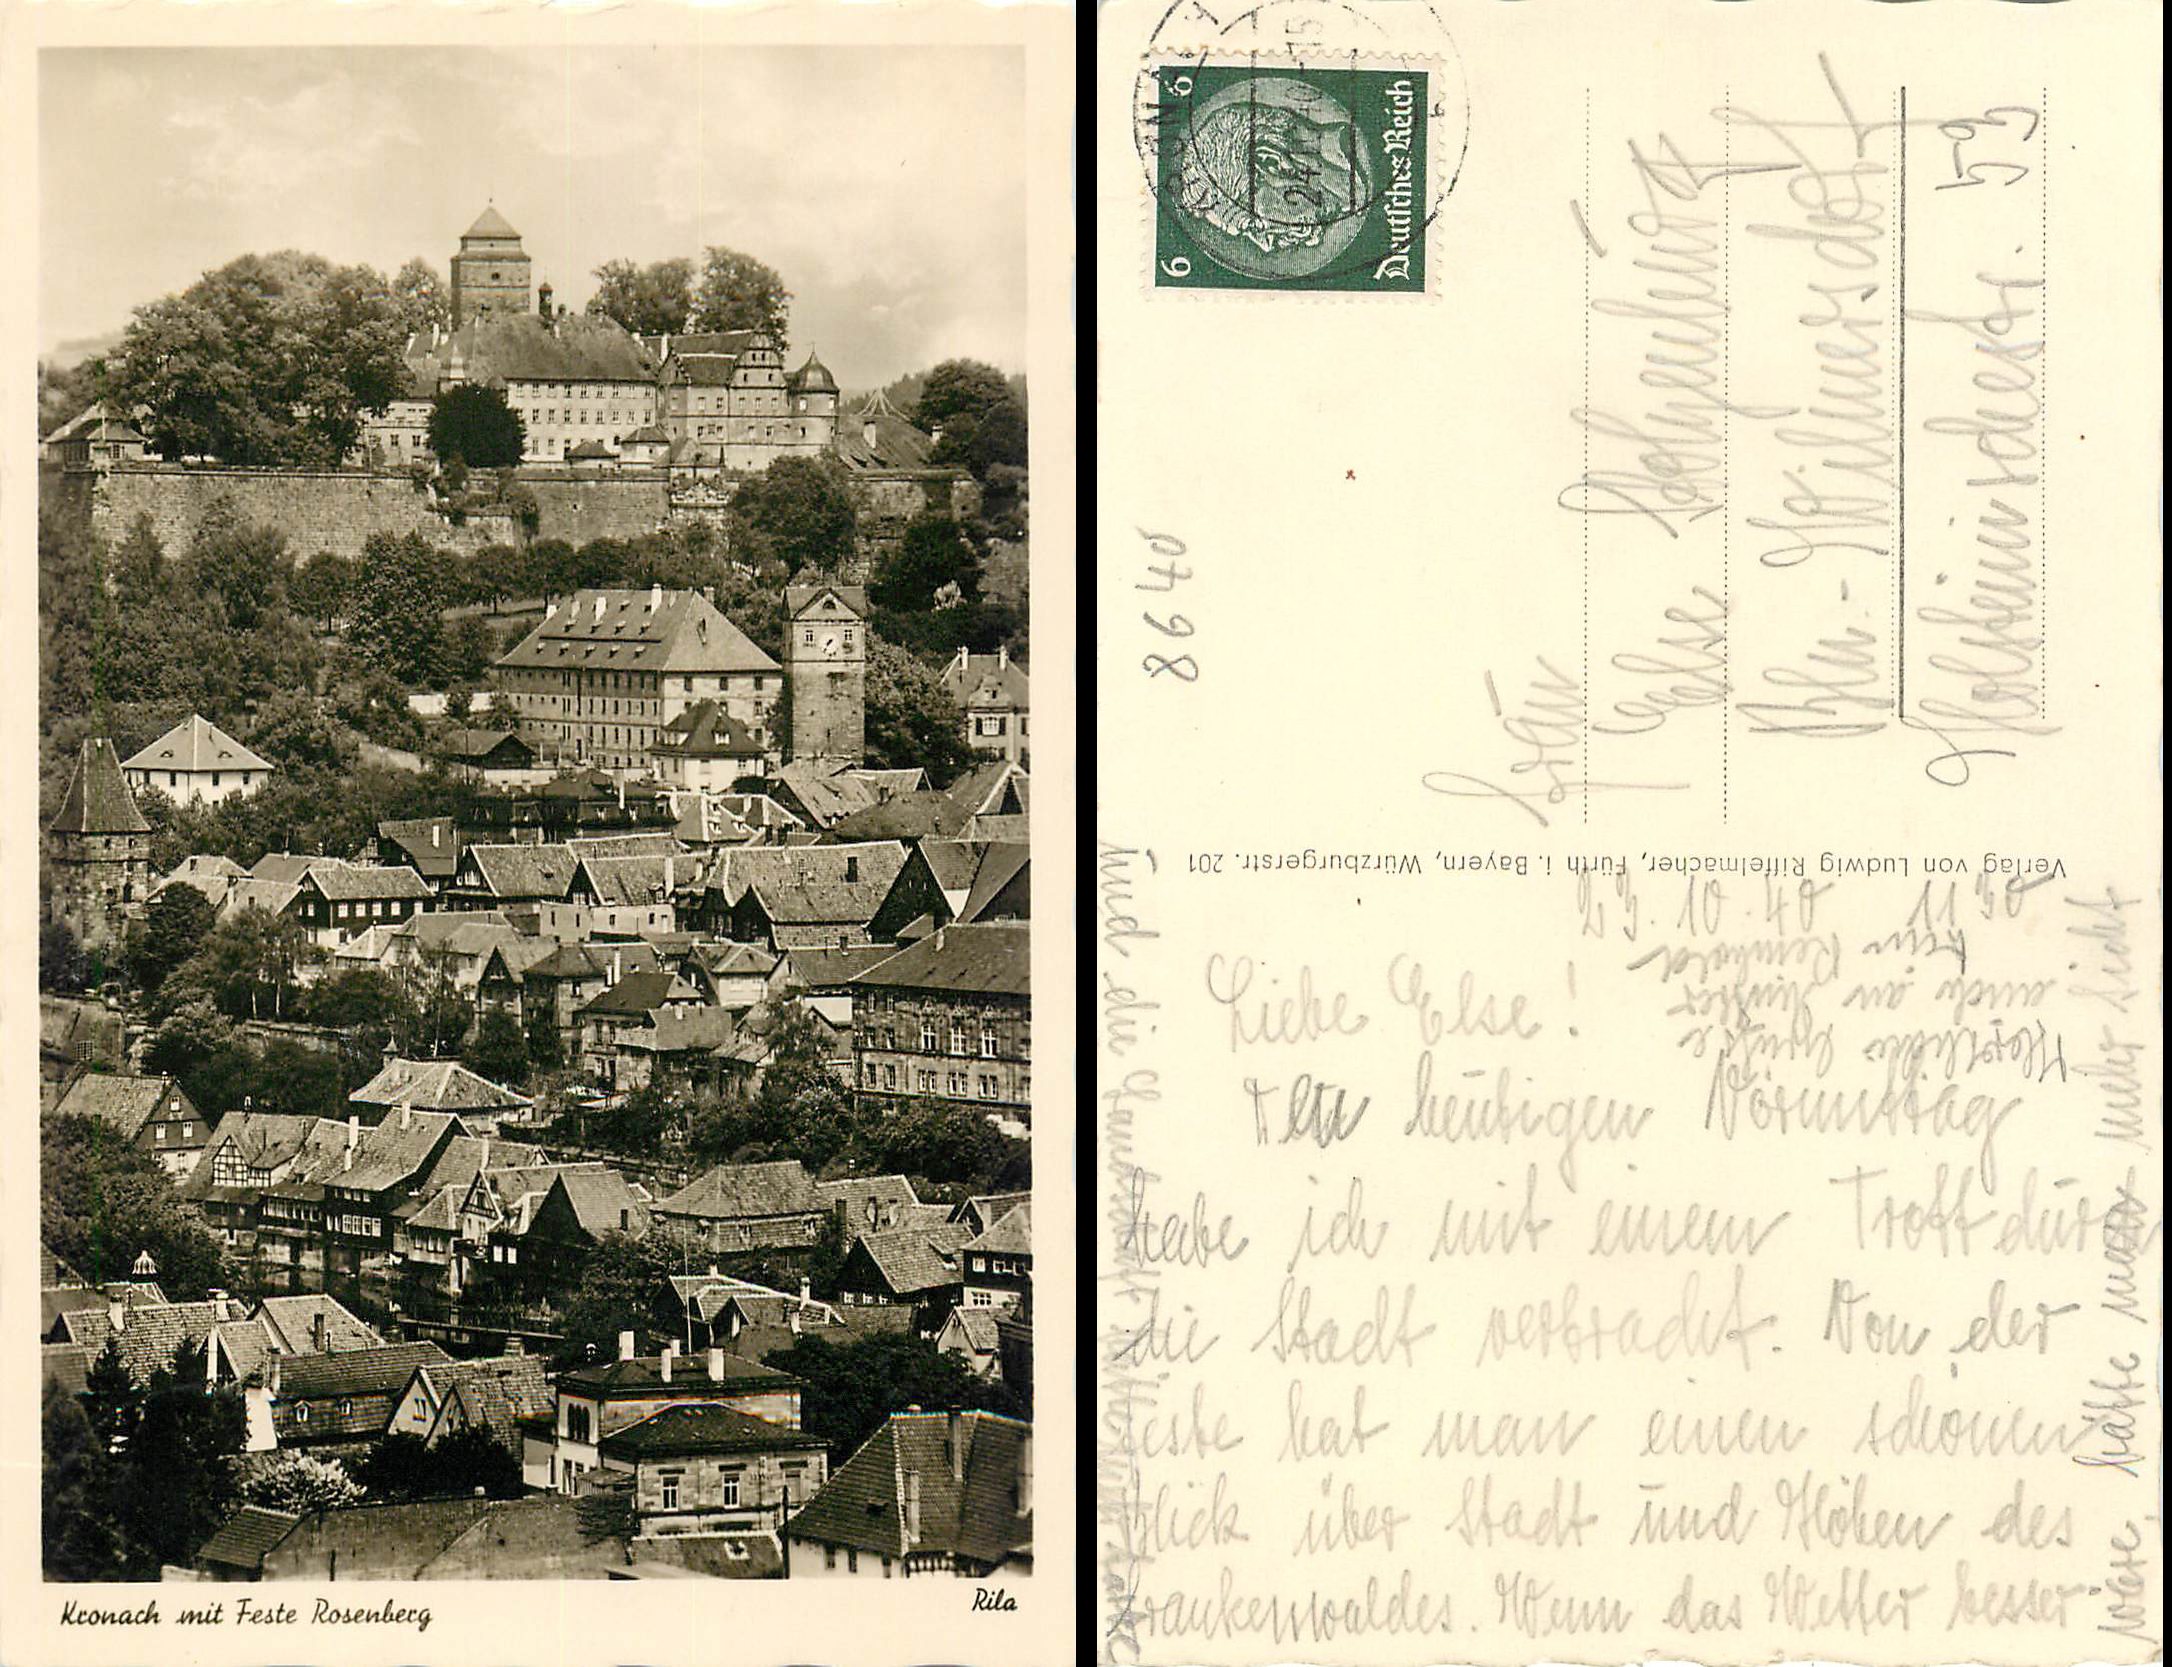 Kronach mit Feste Rosenberg
Rila
6 6
Deutsches Reich
KRONACH
24.11.40.-15
b
8640
Frau
Else
Bln.-Wilmersdorf
Holsteinischestr. 53
Verlag von Ludwig Riffelmacher, Fürth i. Bayern, Würzburgerstr. 201
Liebe Else!
Den heutigen Vormittag
habe ich mit einem Trott durch
die Stadt verbracht. Von der
Feste hat man einen schönen
Blick über Stadt und Höhen des
Frankenwaldes. Wenn das Wetter besser
wäre, hätte man mehr Sicht
und die Landschaft hätte mehr
Herzliche Grüße
auch an Günther
Dein Reinhold